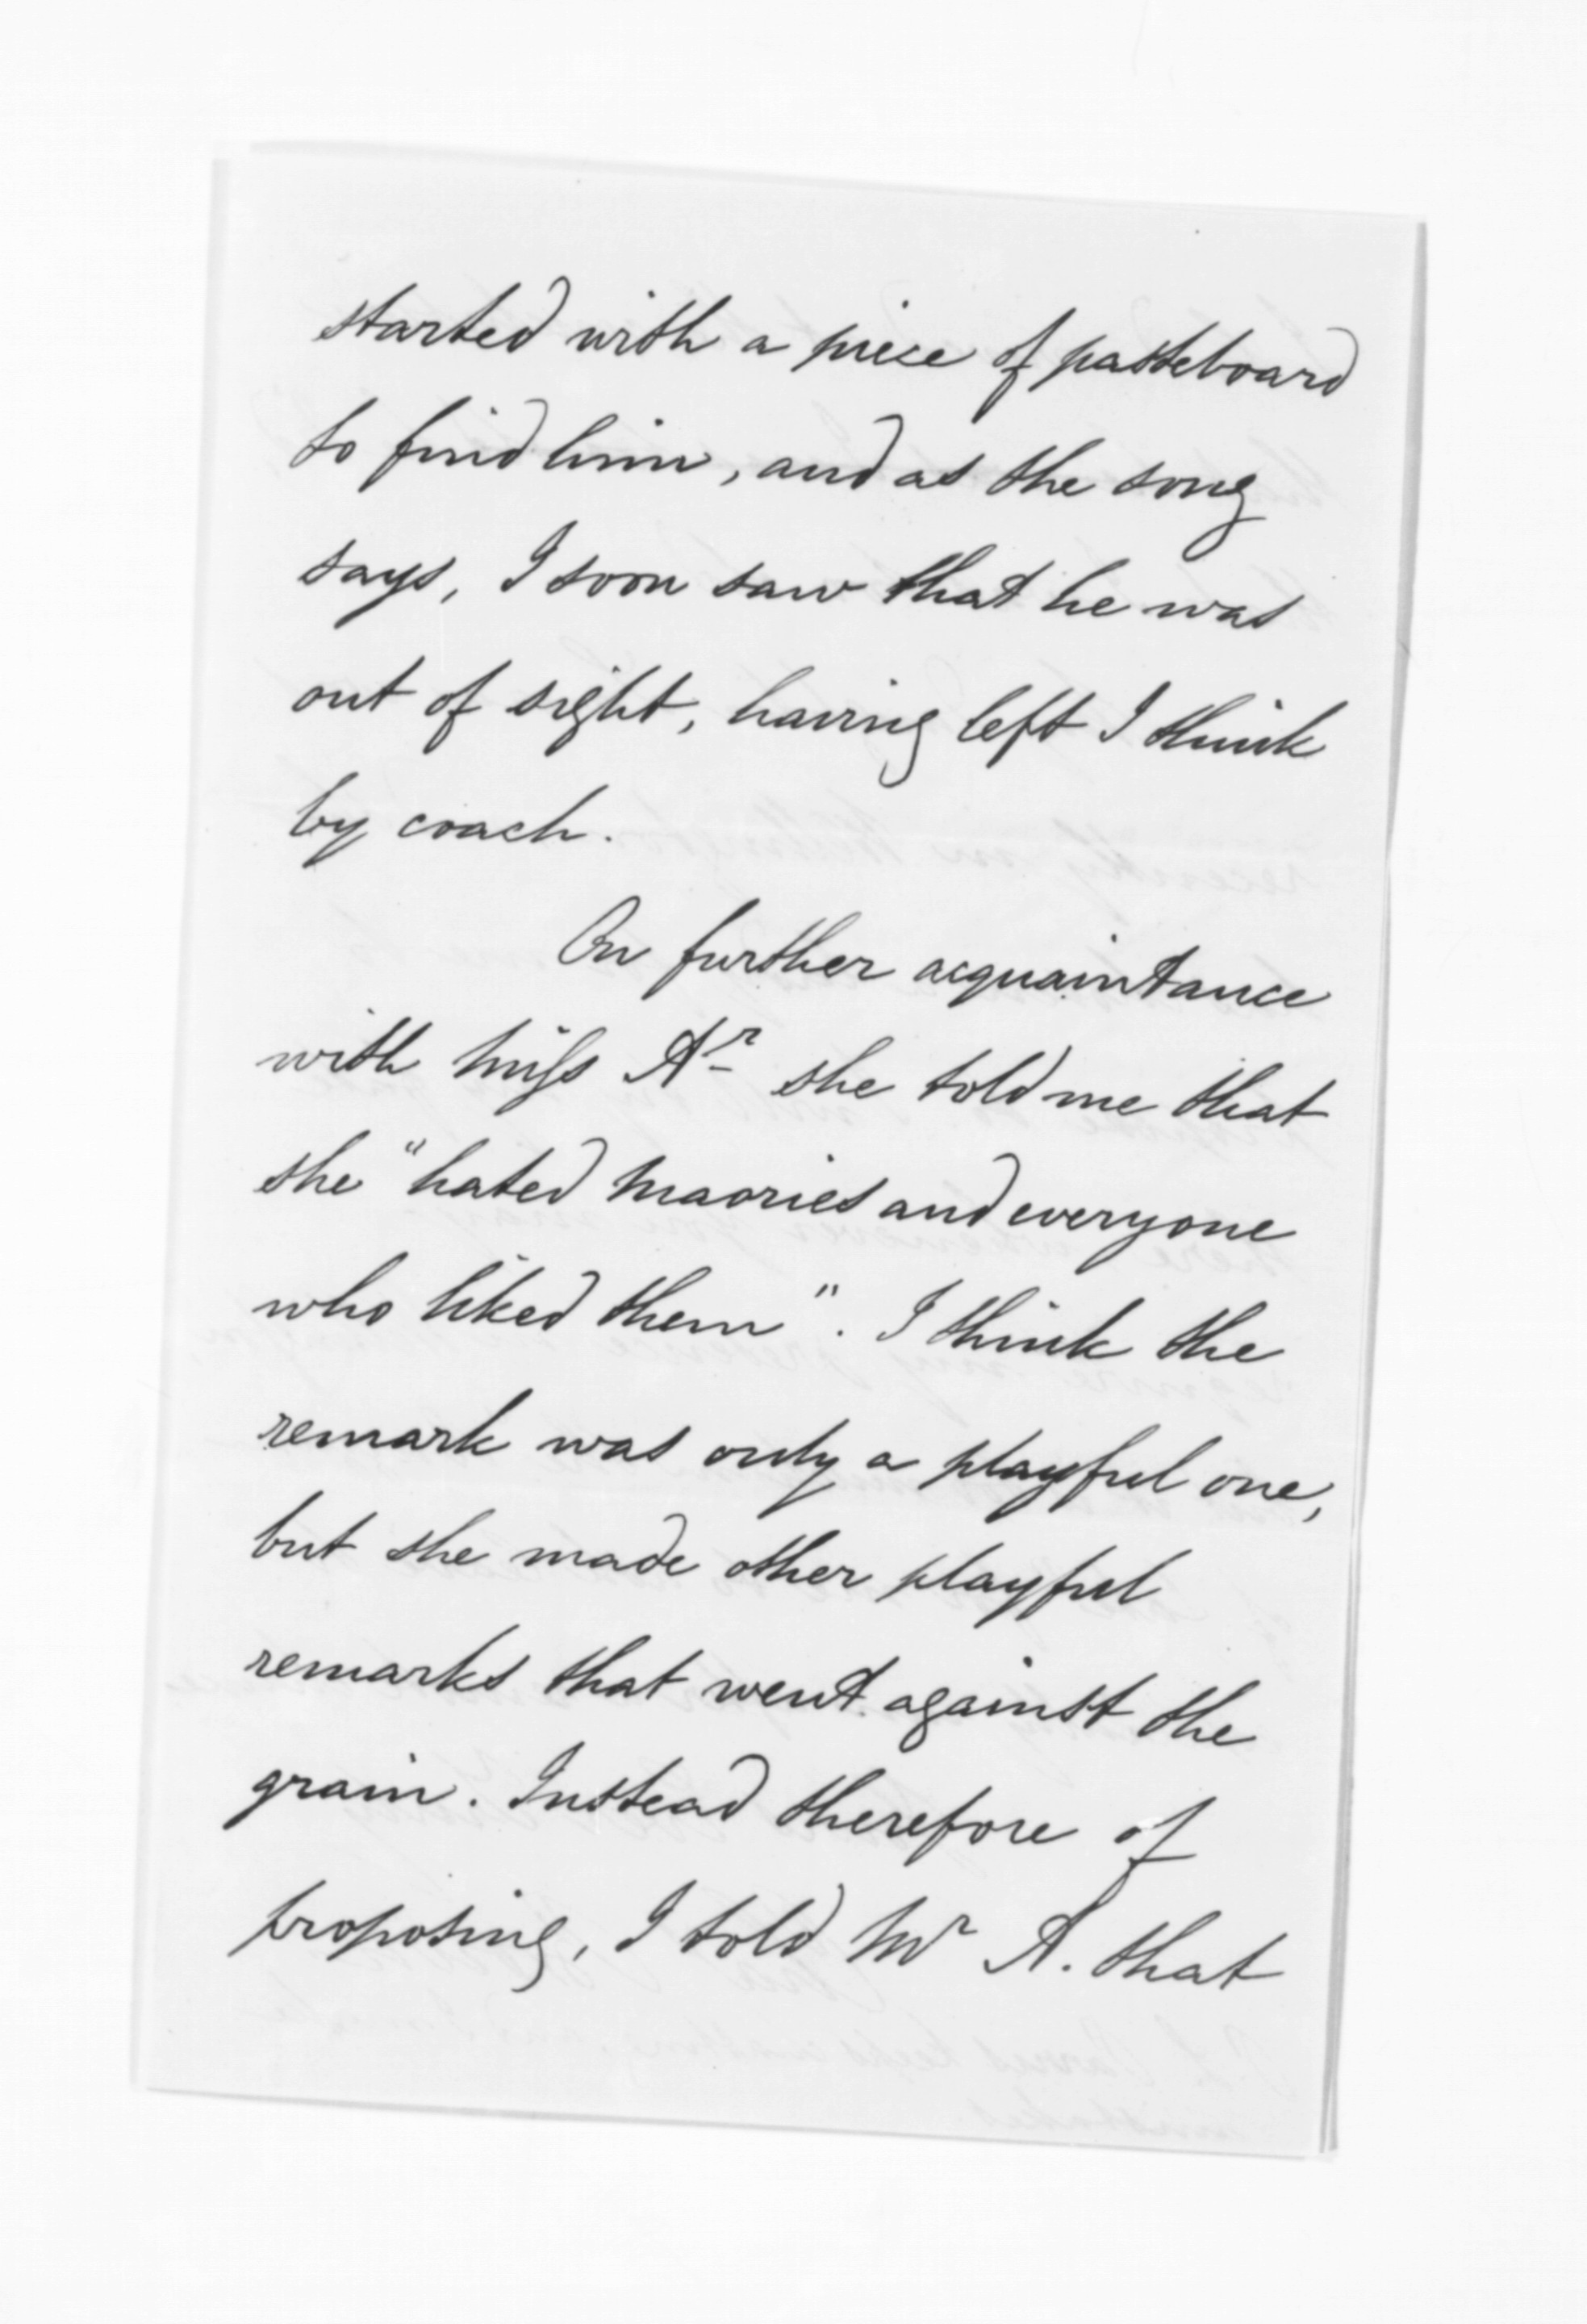 started with a piece of pasteboard
to find him, and as the song
says, I soon saw that he was
out of sight, having left I think
by coach.
On further acquaintance
with Miss Ar she told me that
she "hated Maories and everyone
who liked them". I think the
remark was only a playful one,
but she made other playful
remarks that went against the
grain. Instead therefore of
proposing, I told Mr A. that